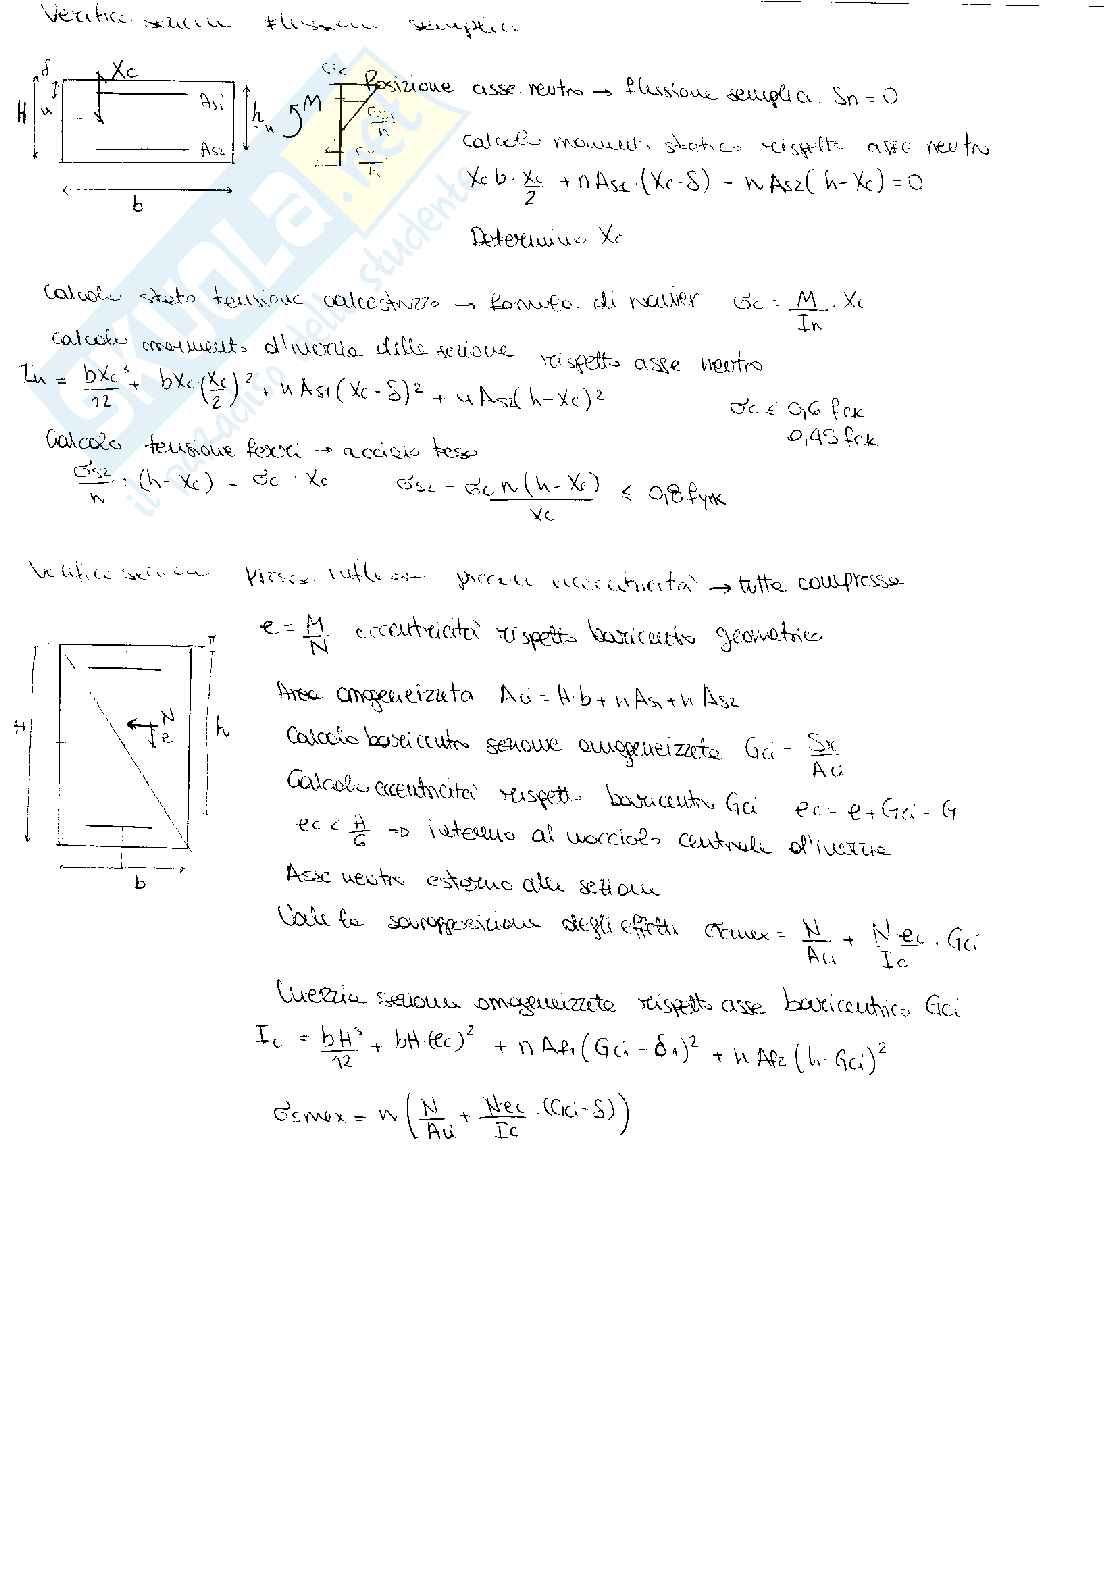 Verifica sezione flessione semplice
δ Xc σc Posizione asse neutro → flessione semplice Sn = 0
H As1 h M σs1/n
As2 σs2/n Calcolo momento statico rispetto asse neutro
b Xc b · Xc/2 + n As1 · (Xc-δ) - n As2 (h-Xc) = 0
Determino Xc
Calcolo stato tensione calcestruzzo → Formula di navier σc = M/In · Xc
Calcolo momento d'inerzia della sezione rispetto asse neutro
In = bXc³/12 + bXc (Xc/2)² + n As1 (Xc-δ)² + n As2 (h-Xc)²
σc ≤ 0,6 fck
0,45 fck
Calcolo tensione ferri → acciaio teso
σs2/n · (h-Xc) = σc · Xc σs2 = σc n (h-Xc)/Xc ≤ 0,8 fyk
Verifica sezione presso flessione piccola eccentricità → tutta compressa
e = M/N eccentricità rispetto baricentro geometrico
Area omogeneizzata Aci = H b + n As1 + n As2
H N e h
Calcolo baricentro sezione omogeneizzata Gci = Sx/Aci
Calcolo eccentricità rispetto baricentro Gci ec = e + Gci - G
ec < H/6 → interno al nocciolo centrale d'inerzia
b
Asse neutro esterno alla sezione
Vale la sovrapposizione degli effetti σcmax = N/Aci + N ec/Ic · Gci
Inerzia sezione omogeneizzata rispetto asse baricentrico Gci
Ic = bH³/12 + bH (ec)² + n Af1 (Gci - δ1)² + n Af2 (h - Gci)²
σsmax = n (N/Aci + N·ec/Ic · (Gci-δ))
SKUOLA.net